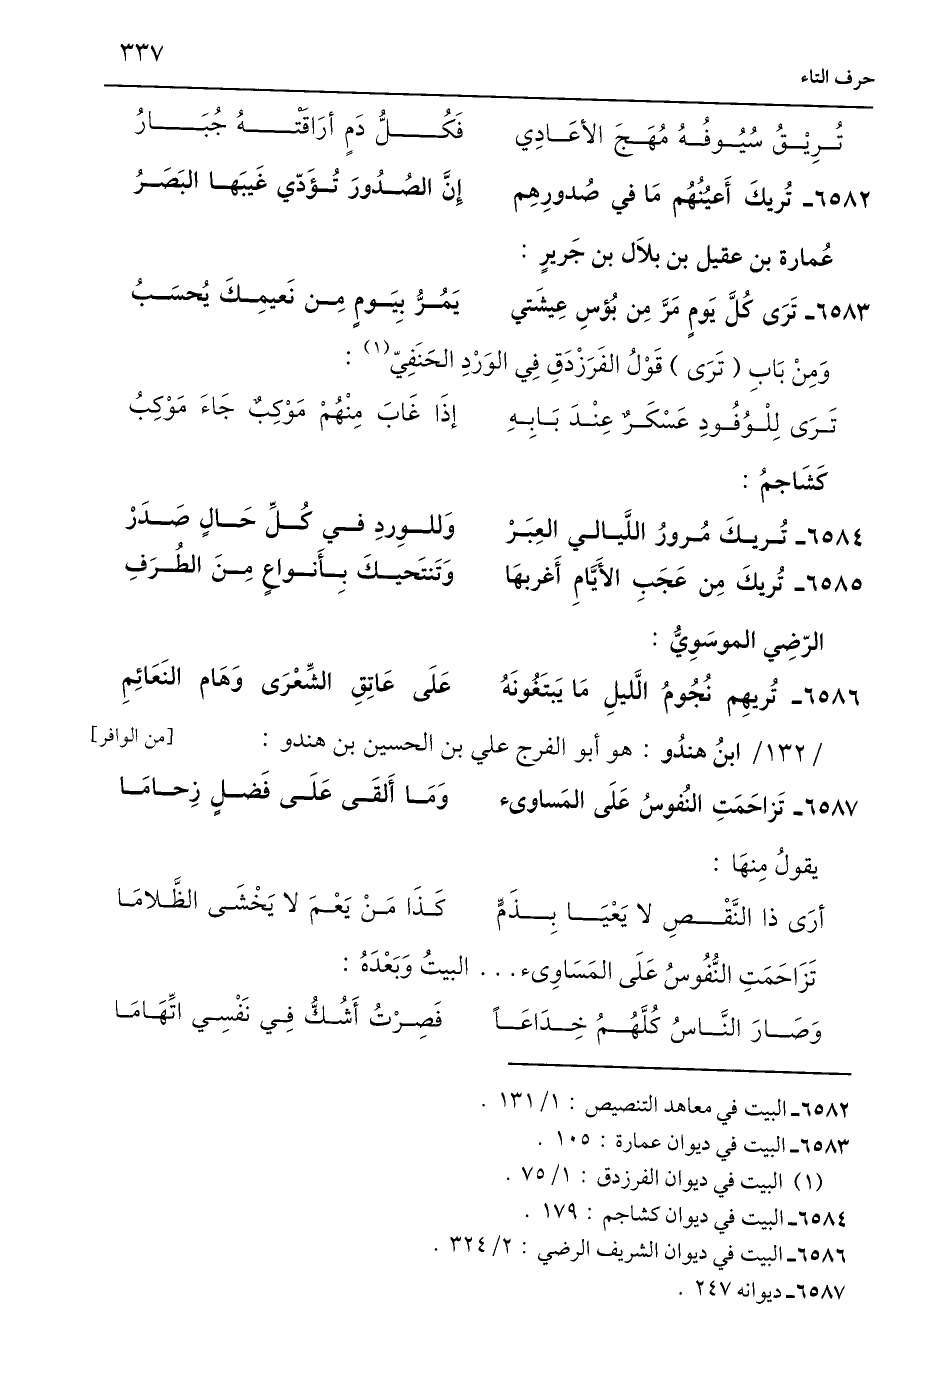 حرف التاء ٣٣٧
تُرِيْقُ سُيُوفُهُ مُهَجَ الأعَادِي فَكُلُّ دَمٍ أرَاقَتْهُ جُبَارُ
٦٥٨٢ـ تُريكَ أَعيُنُهُم مَا في صُدورِهِم إنَّ الصُدُورَ تُؤَدّي غَيبَها البَصَرُ
عُمارة بن عقيل بن بلاَل بن جَريرٍ :
٦٥٨٣ـ تَرَى كُلَّ يَومٍ مَرَّ مِن بُؤسِ عِيشَتي يَمُرُّ بِيَومٍ مِن نَعيمِكَ يُحسَبُ
وَمِنْ بَابِ ( تَرَى ) قَوْلُ الفَرَزْدَقِ فِي الوَرْدِ الحَنَفِيّ(١) :
تَرَى لِلْوُفُودِ عَسْكَرٌ عِنْدَ بَابِهِ إذَا غَابَ مِنْهُمْ مَوْكِبٌ جَاءَ مَوْكِبُ
كَشَاجمُ :
٦٥٨٤ـ تُريكَ مُرورُ اللَّيالي العِبَرْ وَللوِردِ في كُلِّ حَالٍ صَدَرْ
٦٥٨٥ـ تُريكَ مِن عَجَبِ الأَيَّامِ أَغربهَا وَتَنتَحيكَ بِأَنواعٍ مِنَ الطُرَفِ
الرّضِي الموسَوِيُّ :
٦٥٨٦ـ تُريهِم نُجُومُ الَّليلِ مَا يَبتَغُونَهُ عَلَى عَاتِقِ الشِّعْرَى وَهَام النَعَائِمِ
/ ١٣٢/ ابنُ هندُو : هو أبو الفرج علي بن الحسين بن هندو : [من الوافر]
٦٥٨٧ـ تَزاحَمَتِ النُفوسُ عَلَى المَساوىء وَمَا أَلقَى عَلَى فَضلٍ زِحامَا
يقولُ مِنهَا :
أرَى ذا النَّقْصِ لا يَعْيَا بِذَمٍّ كَذَا مَنْ يَعْمَ لا يَخْشَى الظَّلامَا
تَزَاحَمَتِ النُّفُوسُ عَلَى المَسَاوِىء . . . البيتُ وَبَعْدَهُ :
وَصَارَ النَّاسُ كُلَّهُمُ خِدَاعَاً فَصِرْتُ أَشُكُّ فِي نَفْسِي اتِّهَامَا
٦٥٨٢ـ البيت في معاهد التنصيص : ١/ ١٣١ .
٦٥٨٣ـ البيت في ديوان عمارة : ١٠٥ .
(١) البيت في ديوان الفرزدق : ١/ ٧٥ .
٦٥٨٤ـ البيت في ديوان كشاجم : ١٧٩ .
٦٥٨٦ـ البيت في ديوان الشريف الرضي : ٢/ ٣٢٤ .
٦٥٨٧ـ ديوانه ٢٤٧ .